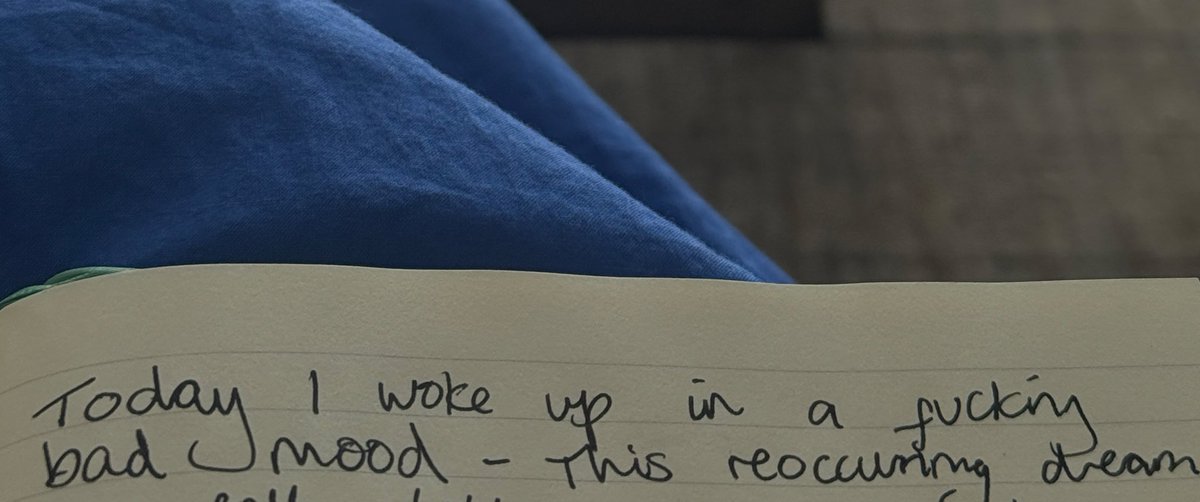 Today I woke up in a fucking
bad mood - This reoccurring dream